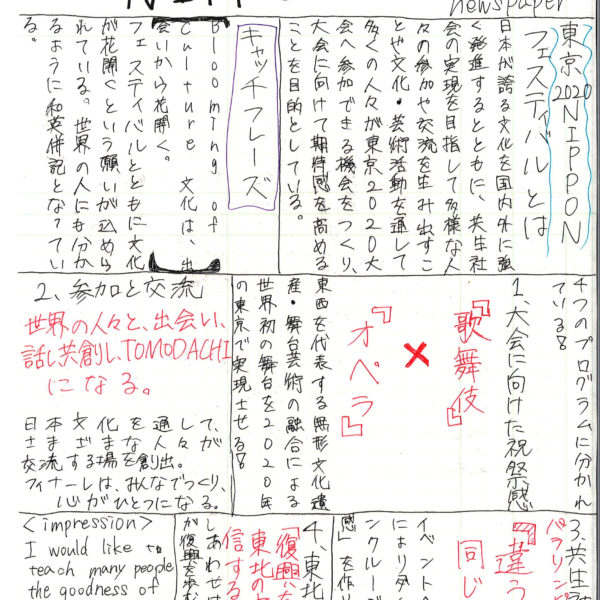 newspaper
東京2020NIPPON
フェスティバルとは
日本が誇る文化を国内外に強
く発進するとともに、共生社
会の実現を目指して多様な人
々の参加や交流を生み出すこ
とや文化・芸術活動を通して
多くの人々が東京2020大
会へ参加できる機会をつくり、
大会に向けて期待感を高める
ことを目的としている。
キャッチフレーズ
Blooming of
Culture 文化は、出
会いから花開く。
フェスティバルとともに文化
が花開くという願いが込めら
れている。世界の人にも分か
るように和英併記となってい
る。
4つのプログラムに分かれ
ている。
1、大会に向けた祝祭感
『歌舞伎』
×
『オペラ』
東西を代表する無形文化遺
産・舞台芸術の融合による
世界初の舞台を2020年
の東京で実現させる。
2、参加と交流
世界の人々と、出会い、
話し共創し、TOMODACHI
になる。
日本文化を通して、
さまざまな人々が
交流する場を創出。
フィナーレは、みんなでつくり、
心がひとつになる。
3、共生
パラリン
『違う
同じ
イベント
によりダ
ンクルー
感」を作り
4、東北
「復興
東北の
信する
しあわせ
が復興
<impression>
I would like to
teach many people
the goodness of